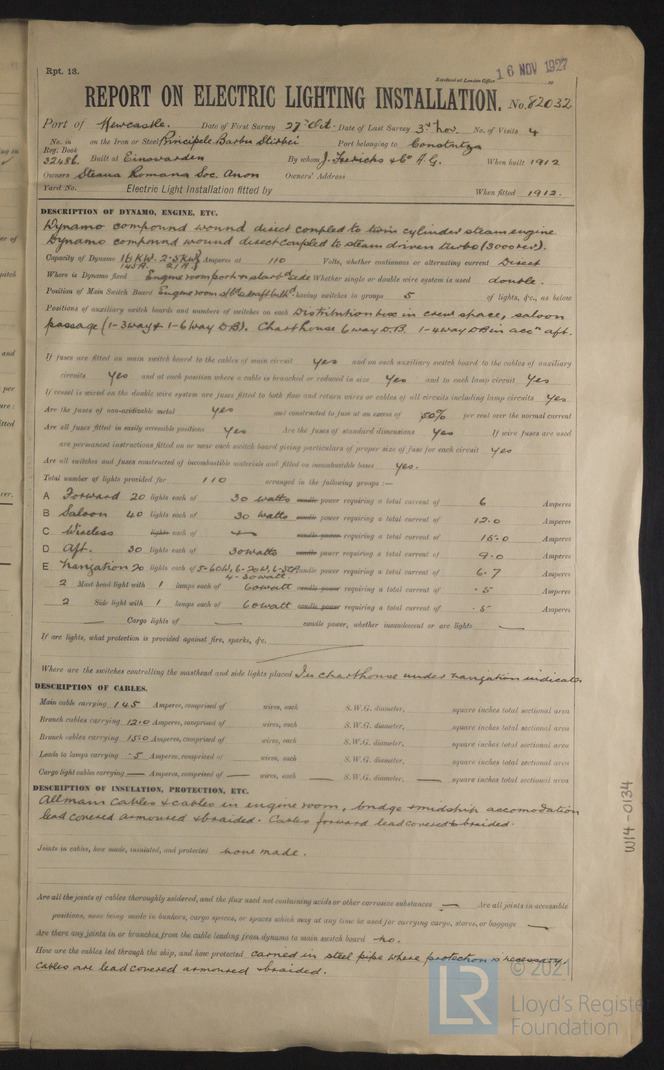 Rpt. 13.
Received at London Office
16 NOV 1927
REPORT ON ELECTRIC LIGHTING INSTALLATION. No. 82032
Port of Newcastle. Date of First Survey 27th Oct. Date of Last Survey 3rd Nov. No. of Visits 4
No. in Reg. Book on the Iron or Steel Principele Barbu Stirbei Port belonging to Constantza
32486. Built at Einswarden By whom J. Frerichs & Co A.G. When built 1912
Owners Steaua Romana Soc. Anon Owners' Address
Yard No. Electric Light Installation fitted by When fitted 1912.
DESCRIPTION OF DYNAMO, ENGINE, ETC.
Dynamo compound wound direct coupled to twin cylinder steam engine
Dynamo compound wound direct coupled to steam driven turbo (3000 rev).
Capacity of Dynamo 16 KW. 2.3 KW Amperes at 110 Volts, whether continuous or alternating current Direct
145 A. 21 A.
Where is Dynamo fixed Engine room port & starbd side Whether single or double wire system is used double.
Position of Main Switch Board Engine room having switches to groups 5 of lights, &c., as below
Positions of auxiliary switch boards and numbers of switches on each Distribution box in crew space, saloon
passage (1-3way & 1-6way D.B). Charthouse 6 way D.B. 1-4way DB in accn aft.
If fuses are fitted on main switch board to the cables of main circuit yes and on each auxiliary switch board to the cables of auxiliary
circuits yes and at each position where a cable is branched or reduced in size yes and to each lamp circuit yes
If vessel is wired on the double wire system are fuses fitted to both flow and return wires or cables of all circuits including lamp circuits yes
Are the fuses of non-oxidizable metal yes and constructed to fuse at an excess of 50% per cent over the normal current
Are all fuses fitted in easily accessible positions yes Are the fuses of standard dimensions yes If wire fuses are used
are permanent instructions fitted on or near each switch board giving particulars of proper size of fuse for each circuit yes
Are all switches and fuses constructed of incombustible materials and fitted on incombustible bases yes.
Total number of lights provided for 110 arranged in the following groups :—
A Forward 20 lights each of 30 watts candle power requiring a total current of 6 Amperes
B Saloon 40 lights each of 30 watts candle power requiring a total current of 12.0 Amperes
C Wireless lights each of candle power requiring a total current of 15.0 Amperes
D Aft. 30 lights each of 30 watts candle power requiring a total current of 9.0 Amperes
E Navigation 20 lights each of 5-60W, 6-20W, candle power requiring a total current of 6.7 Amperes
4-30 watt.
2 Mast head light with 1 lamps each of 60 watt candle power requiring a total current of .5 Amperes
2 Side light with 1 lamps each of 60 watt candle power requiring a total current of .5 Amperes
— Cargo lights of — candle power, whether incandescent or arc lights —
If arc lights, what protection is provided against fire, sparks, &c.
Where are the switches controlling the masthead and side lights placed In charthouse under navigation indicator
DESCRIPTION OF CABLES.
Main cable carrying 145 Amperes, comprised of wires, each S.W.G. diameter, square inches total sectional area
Branch cables carrying 12.0 Amperes, comprised of wires, each S.W.G. diameter, square inches total sectional area
Branch cables carrying 15.0 Amperes, comprised of wires, each S.W.G. diameter, square inches total sectional area
Leads to lamps carrying .5 Amperes, comprised of wires, each S.W.G. diameter, square inches total sectional area
Cargo light cables carrying — Amperes, comprised of — wires, each — S.W.G. diameter, — square inches total sectional area
DESCRIPTION OF INSULATION, PROTECTION, ETC.
All main cables & cables in engine room, bridge & midship accomodation
lead covered armoured & braided. Cables forward lead covered & braided.
Joints in cables, how made, insulated, and protected none made.
Are all the joints of cables thoroughly soldered, and the flux used not containing acids or other corrosive substances — Are all joints in accessible
positions, none being made in bunkers, cargo spaces, or spaces which may at any time be used for carrying cargo, stores, or baggage —
Are there any joints in or branches from the cable leading from dynamo to main switch board no.
How are the cables led through the ship, and how protected carried in steel pipe where protection is necessary,
cables are lead covered armoured & braided.
W14-0134
© 2021
LR
Lloyd's Register
Foundation